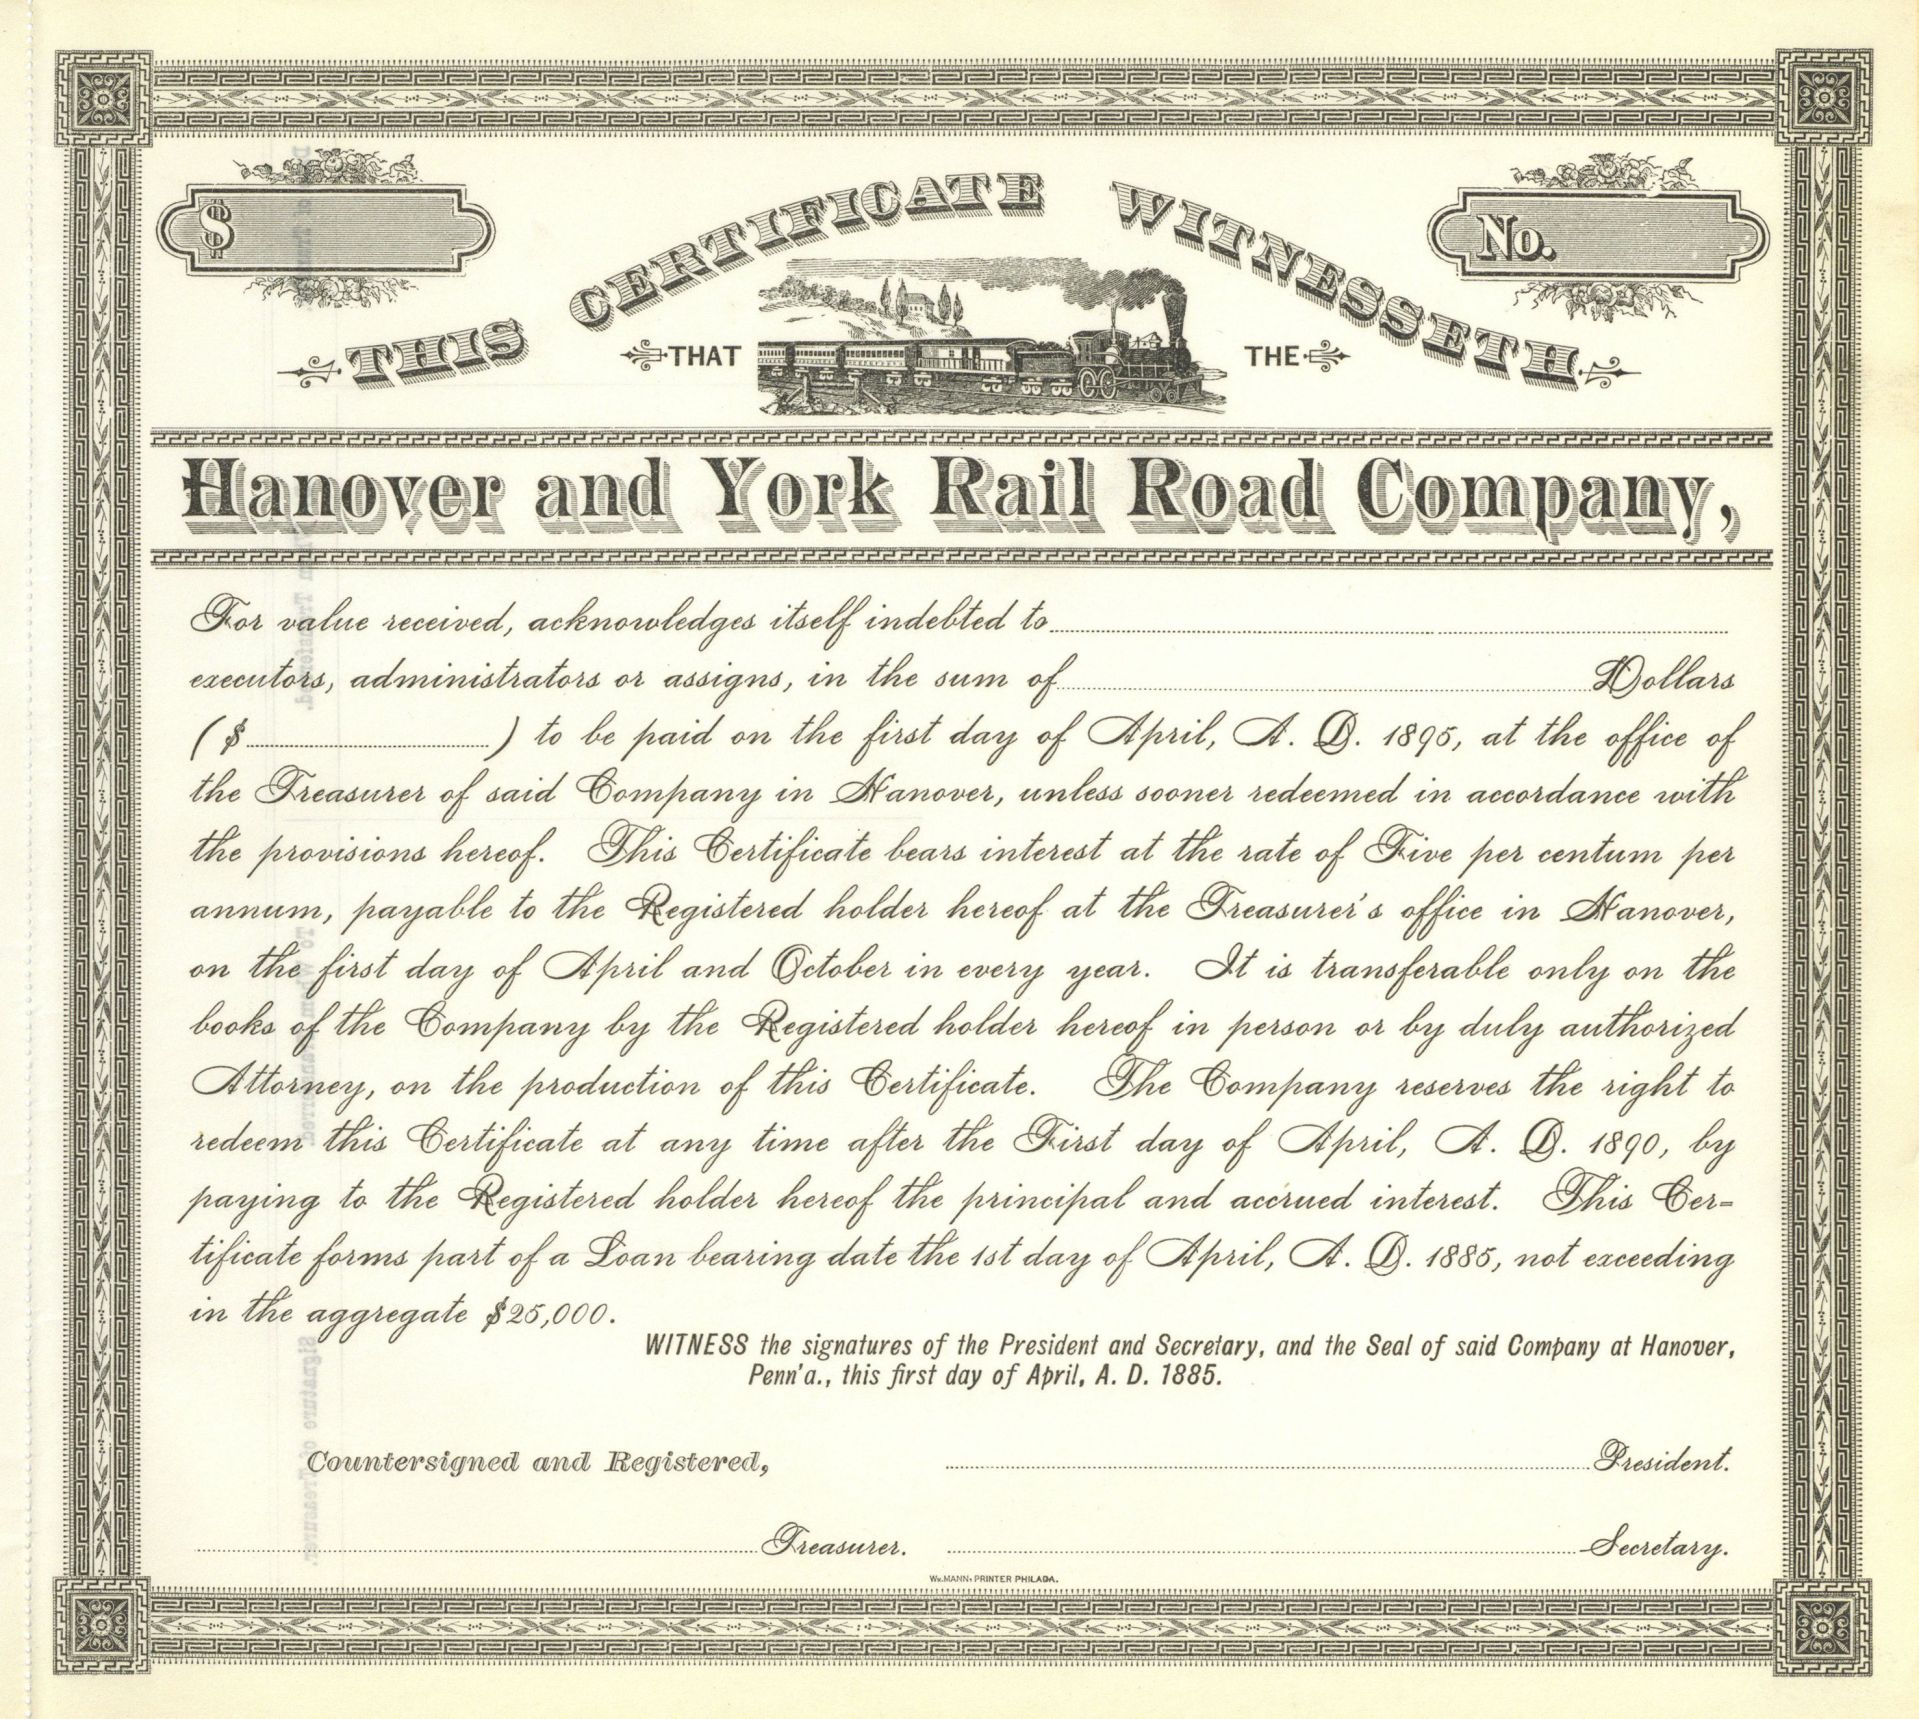 $
No.
THIS CERTIFICATE WITNESSETH
THAT THE
Hanover and York Rail Road Company,
For value received, acknowledges itself indebted to
executors, administrators or assigns, in the sum of Dollars
($ ) to be paid on the first day of April, A. D. 1895, at the office of
the Treasurer of said Company in Hanover, unless sooner redeemed in accordance with
the provisions hereof. This Certificate bears interest at the rate of Five per centum per
annum, payable to the Registered holder hereof at the Treasurer's office in Hanover,
on the first day of April and October in every year. It is transferable only on the
books of the Company by the Registered holder hereof in person or by duly authorized
Attorney, on the production of this Certificate. The Company reserves the right to
redeem this Certificate at any time after the First day of April, A. D. 1890, by
paying to the Registered holder hereof the principal and accrued interest. This Cer=
tificate forms part of a Loan bearing date the 1st day of April, A. D. 1885, not exceeding
in the aggregate $25,000.
WITNESS the signatures of the President and Secretary, and the Seal of said Company at Hanover,
Penn'a., this first day of April, A. D. 1885.
Countersigned and Registered,
President.
Treasurer.
Secretary.
Wm. MANN, PRINTER PHILADA.